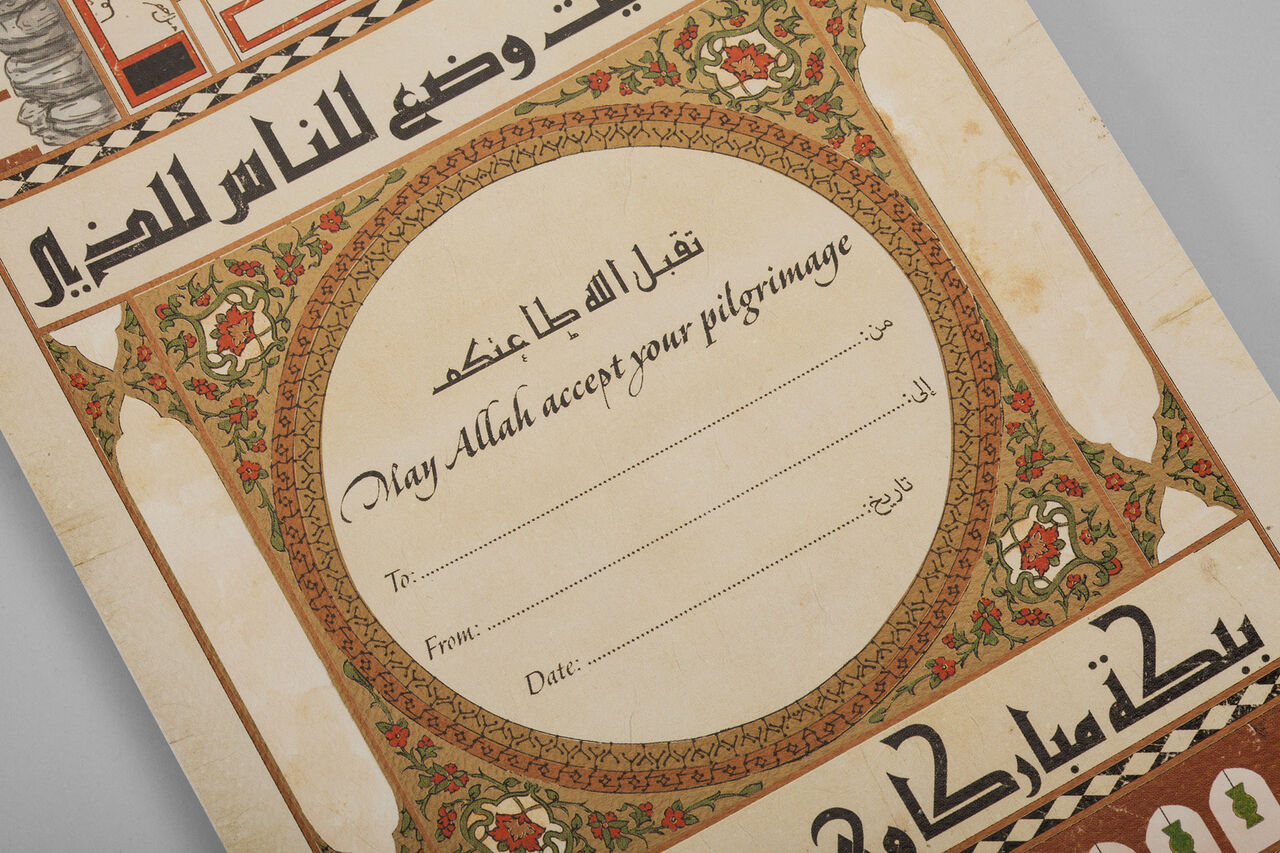 وضع للناس للذي
تقبل الله طاعتكم
May Allah accept your pilgrimage
To:.......... من:
From: .......... إلى:
Date: .......... تاريخ:
ببكة مباركا